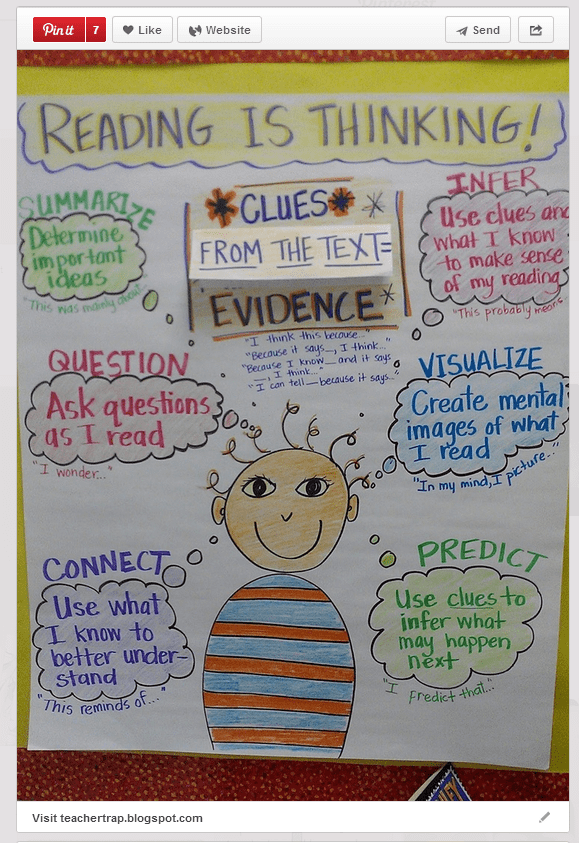 Pin it 7 Like Website Send
READING IS THINKING!
SUMMARIZE
Determine
important
ideas
"This was mainly about..."
CLUES
FROM THE TEXT=
EVIDENCE
"I think this because..."
"Because it says__, I think..."
"Because I know__ and it says
__, I think..."
"I can tell__because it says..."
INFER
Use clues and
what I know
to make sense
of my reading
"This probably means
QUESTION
Ask questions
as I read
"I wonder..."
VISUALIZE
Create mental
images of what
I read
"In my mind, I picture..."
CONNECT
Use what
I know to
better under-
stand
"This reminds of..."
PREDICT
Use clues to
infer what
may happen
next
"I predict that..."
Visit teachertrap.blogspot.com